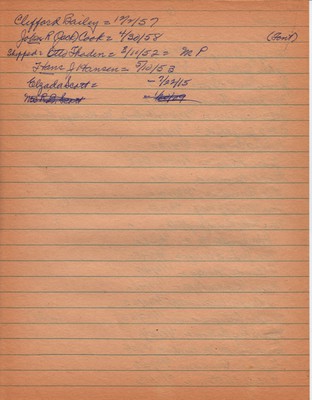 Clifford Bailey = 10/7/57
John R (Jack) Cook = 4/26/58 (Cont)
Shipped = Otto Thaden = 3/10/52 = M P
Hans J Hansen = 5/10/53
Elzada Scott = - 7/22/15